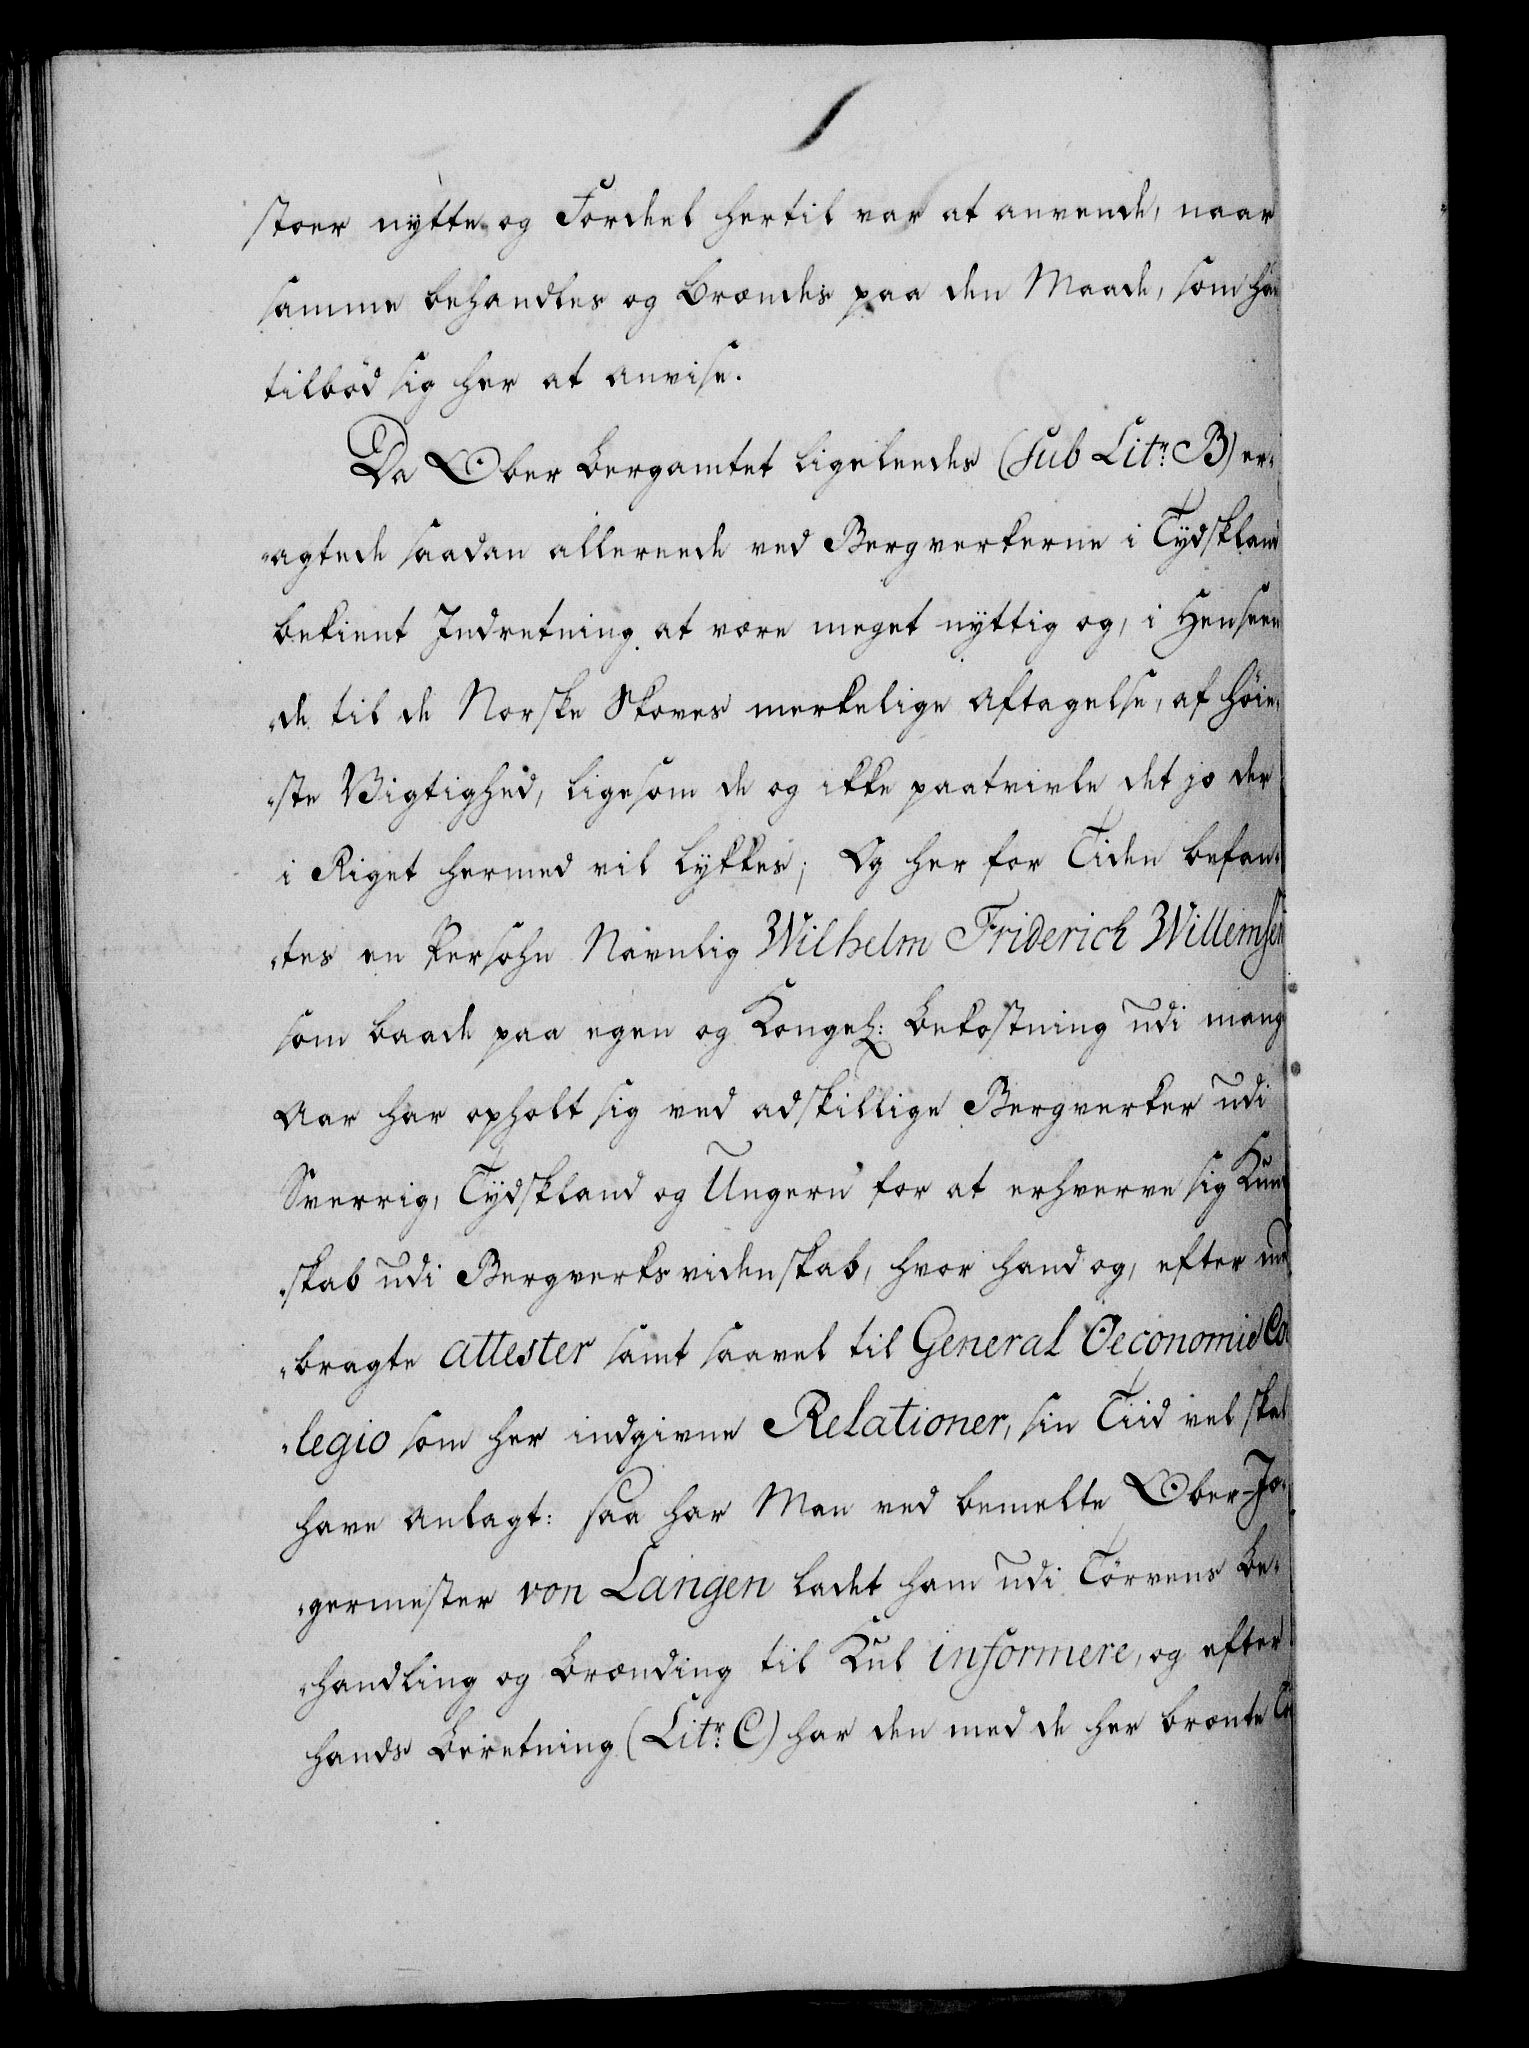 stoer nytte og Fordeel hertil var at anvende, naar
samme behandles og brændes paa den Maade, som han
tilbød sig her at anvise.
Da Ober Bergamtet ligeleedes (sub Litr: B) er-
agtede saadan allereede ved Bergverkerne i Tydskland
bekient Indretning at være meget nyttig og, i Henseen
de til de Norske Skoves merkelige Aftagelse, af høie-
ste Vigtighed, ligesom de og ikke paatvivle det jo der
i Riget hermed vil lykkes; Og her for Tiden befan-
tes en Persohn Navnlig Wilhelm Friderich Willemsen
som baade paa egen og Kongel: Bekostning udi mang
Aar har opholt sig ved adskillige Bergverker udi
Sverrig, Tydskland og Ungern for at erhverve sig Kund
skab udi Bergverks videnskab, hvor hand og, efter med
bragte attester samt saavel til General Oeconomie Col
legio som her indgivne Relationer, sin Tiid vel skal
have anlagt: saa har Man ved bemelte Ober-Jæ-
germester von Langen ladet ham udi Tørvens Be-
handling og Brænding til Kul informere, og efter
hands Beretning (Litr: C) har den med de her brænte